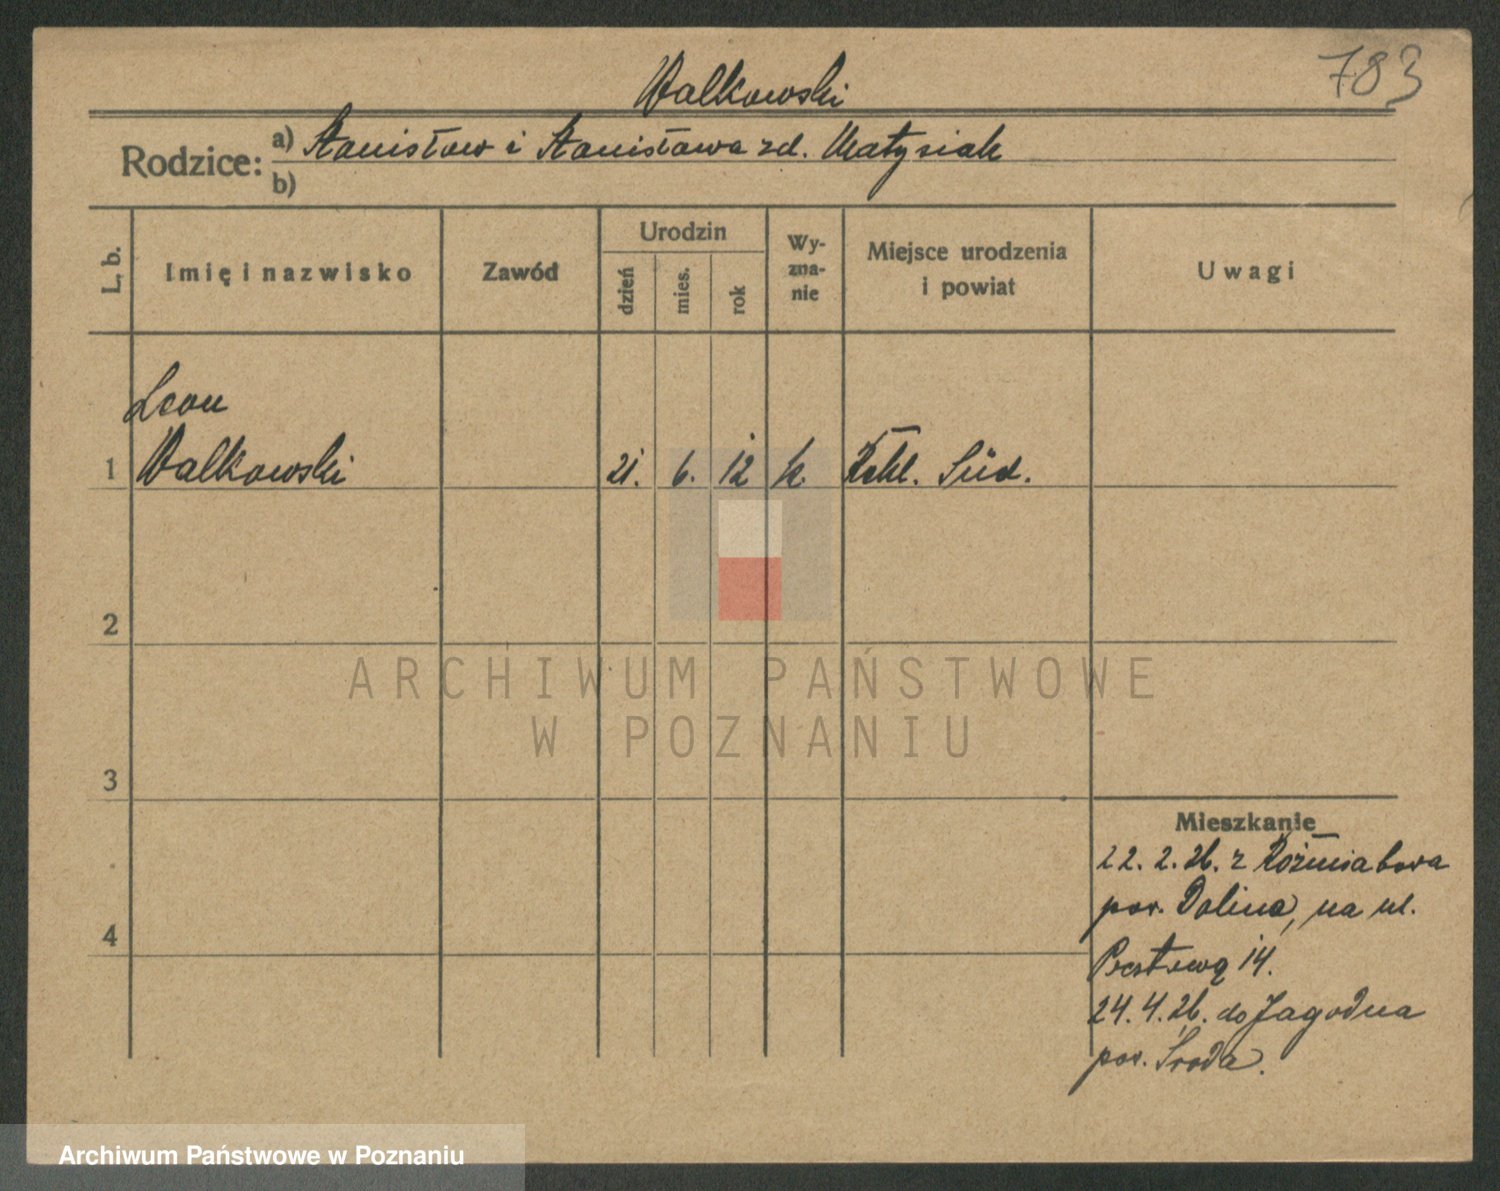 783
Walkowski
Rodzice: a) Stanisław i Stanisława zd. Matysiak
b)
L. b.
Imię i nazwisko
Zawód
Urodzin
dzień
mies.
rok
Wy-
zna-
nie
Miejsce urodzenia
i powiat
Uwagi
Leon
1 Walkowski 21. 6. 12 k. Süd.
2
3
4
Mieszkanie
22. 2. 26. z
pow. na ul.
14.
24. 4. 26. do Jagodna
pow. Środa.
ARCHIWUM PAŃSTWOWE
W POZNANIU
Archiwum Państwowe w Poznaniu